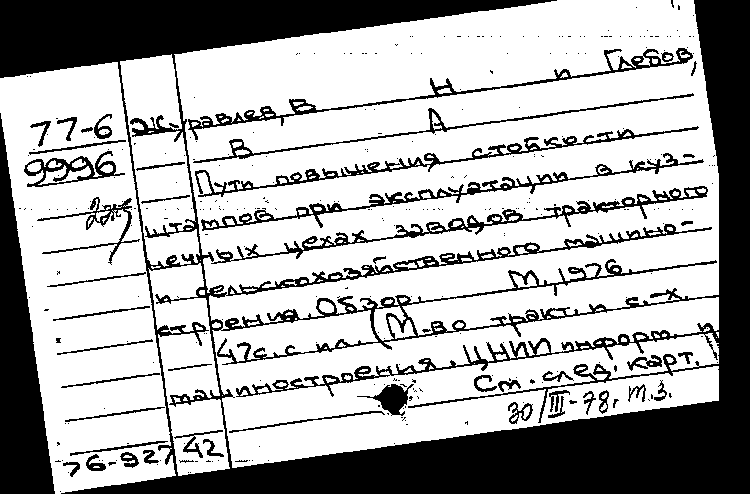 77-6
9996
2 экз
Журавлев, В Н и Глебов,
В А
Пути повышения стойкости
штампов при эксплуатации в куз-
нечных цехах заводов тракторного
и сельскохозяйственного машино-
строения. Обзор. М., 1976.
47с. с ил. (М-во тракт. и с.-х.
машиностроения. ЦНИИ информ. и
См. след. карт.
30/III-78. т.з.
76-927 42